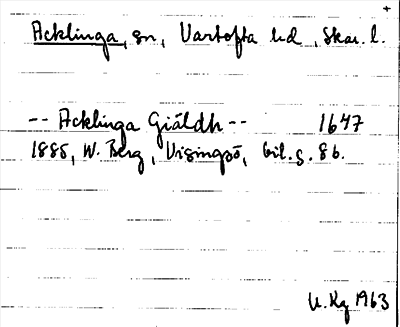 +
Acklinga, sn, Vartofta hd, Skar. l.
-- Acklinga Giäldh -- 1647
1885, W. Berg, Visingsö, bil. s. 86.
U. Kg 1963